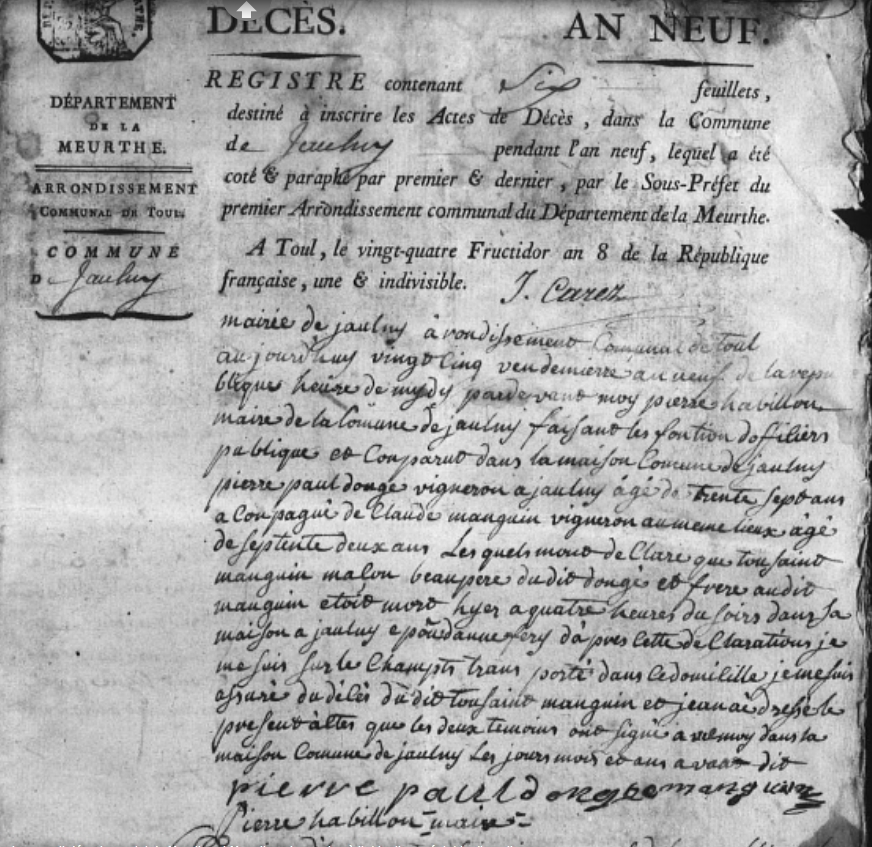 DÉCÈS. AN NEUF.
DÉPARTEMENT
DE LA
MEURTHE.
ARRONDISSEMENT
COMMUNAL DE TOUL.
COMMUNE
D Jaulny
REGISTRE contenant Six feuillets,
destiné à inscrire les Actes de Décès, dans la Commune
de Jaulny pendant l'an neuf, lequel a été
coté & paraphé par premier & dernier, par le Sous-Préfet du
premier Arrondissement communal du Département de la Meurthe.
A Toul, le vingt-quatre Fructidor an 8 de la République
française, une & indivisible. J. Carez
mairie de jaulny arondissement Communal de Toul
aujourdhuy vingt Cinq vendemierre an neuf de la repu
blique heure de mydy pardevant moy pierre habillon
maire de la Comune de jaulny faisant les fontion dofficiers
publique et Conparut dans la maison Comune de jaulny
pierre paul dongé vigneron a jaulny âgé de trente sept ans
a Conpagné de Claude manguin vigneron au meme lieux âgé
de septente deux ans Les quels mont de Clare que tousaint
manguin beaupere du dit dongé et frere audit
manguin etoit mort hyer a quatre heures du soirs dans sa
maison a jaulny danne fery dâ pres Cette de Clarations je
me suis sur le Champts trans porté dans Ce domicille je me suis
assuré du déces dudit tousaint manguin et jean ai dressé le
present âctes que les deux temoins ont signé avec moy dans la
maison Comune de jaulny Les jours mois et ans avant dit
pierre paul dongé manguin
Pierre habillon maire